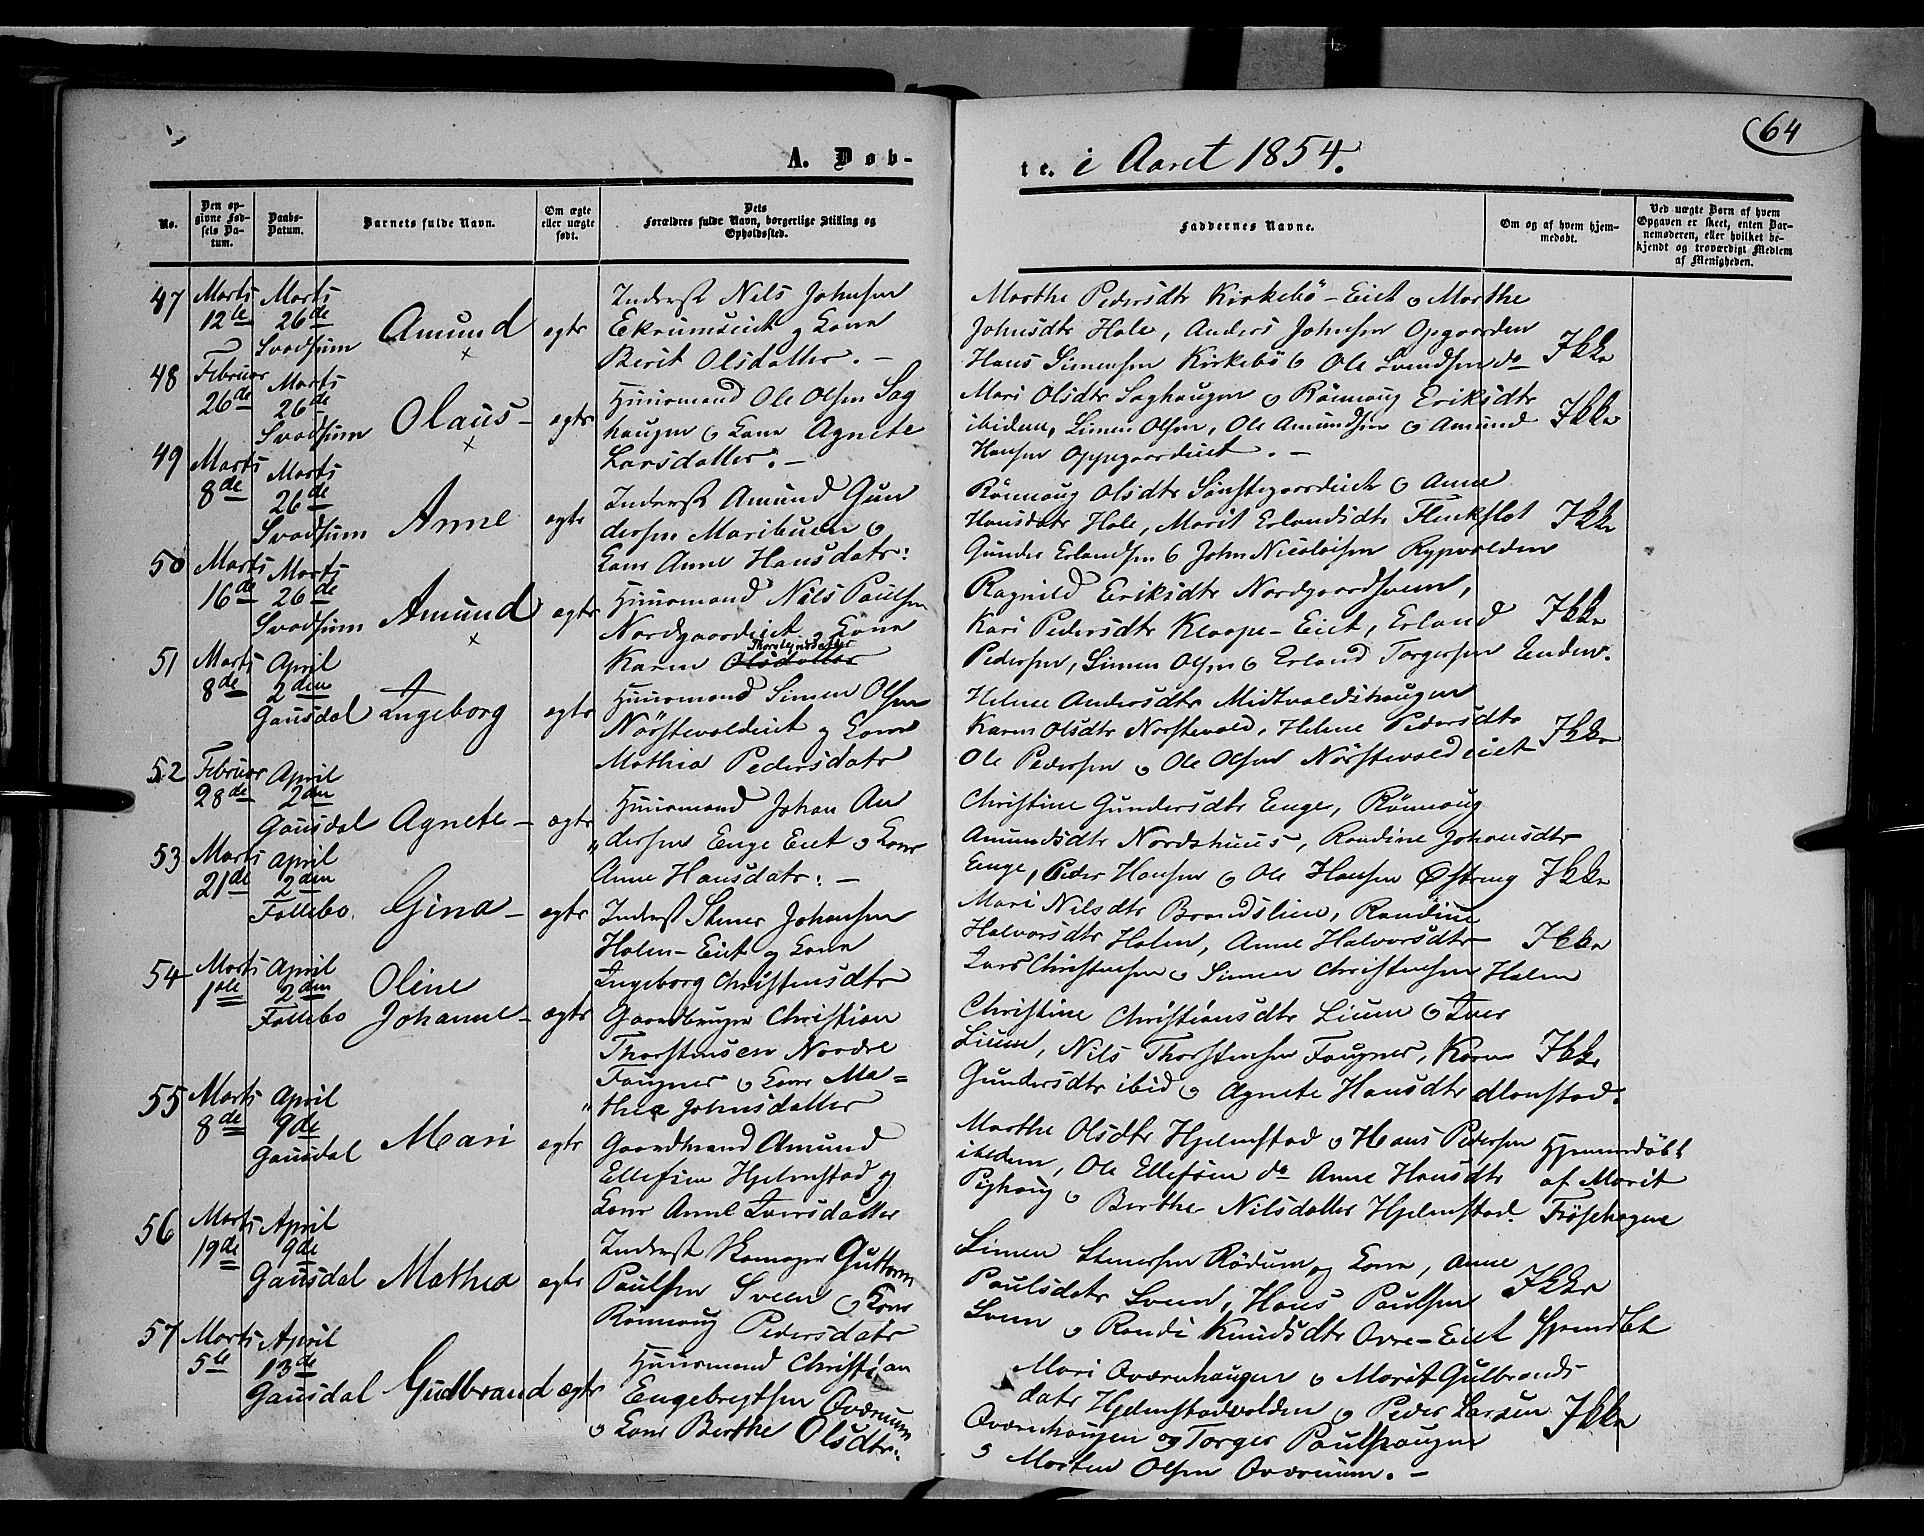 64
A. Døb-
te. i Aaret 1854.
No.
Den op-
givne Fød-
sels Da-
tum.
Daabs-
Datum.
Barnets fulde Navn.
Om ægte
eller uægte
født.
Dets
Forældres fulde Navn, borgerlige Stilling og
Opholdssted.
Faddernes Navne.
Om og af hvem hjem-
medøbt.
Ved uægte Børn af hvem
Opgaven er skeet, enten Bar-
nemoderen, eller hvilket be-
kjendt og troværdigt Medlem
af Menigheden.
47 Marts 12te Marts 26de Svadsum Amund egte
Inderst Nils Johnsen
Ekrumseiet og Kone
Berit Olsdatter. –
Marthe Pedersdtr Kirkebö-Eiet o Marthe
Johnsdtr Hole, Anders Johnsen Opgaarden
Hans Simensen Kirkebö o Ole Svendsen do
Ikke
48 Februar 26de Marts 26de Svadsum Olaus – egte
Huusmand Ole Olsen Sag
haugen o Kone Agnete
Larsdatter. –
Mari Olsdtr Saghaugen o Rönnaug Eriksdtr
ibidem, Simen Olsen, Ole Amundsen o Amund
Hansen Oppgaardeiet. –
Ikke
49 Marts 8de Marts 26de Svadsum Anne egte
Inderst Amund Gun
dersen Maribuen o
Kone Anne Hansdatr:
Rönnaug Olsdtr Sönstegaardeiet o Anne
Hansdatr Hole, Marit Erlandsdtr Flinkflot
Gunder Erlandsen o John Nicolaisen Rypvolden
Ikke
50 Marts 16de Marts 26de Svadsum Amund egte
Huusmand Nils Paulsen
Nordgaardeiet o Kone
Thorsteinsdatter
Karen Olsdatter
Ragnild Eriksdtr Nordgaardsveen,
Kari Pedersdtr Kloppe-Eiet, Erland
Pedersen, Simen Olsen o Erland Torgersen Enden.
Ikke
51 Marts 8de April 2den Gausdal Ingeborg egte
Huusmand Simen Olsen
Nörstevoldeiet og Kone
Mathia Pedersdatr
Helene Andersdtr Midtvoldshaugen
Karen Olsdtr Norstevold, Helene Pedersdtr
Ole Pedersen o Ole Olsen Nörstevoldeiet
Ikke
52 Februar 28de April 2den Gausdal Agnete – egte
Huusmand Johan An
dersen Enge Eiet o Kone
Anne Hansdatr: –
Christine Gundersdtr Enge, Rönnaug
Amundsdtr Nordshuus, Randine Johansdtr
Enge, Peder Hansen o Ole Hansen Østeng
Ikke
53 Marts 21de April 2den Follebo. Gina – egte
Inderst Stener Johansen
Holen-Eiet og Kone
Ingeborg Christensdtr
Mari Nilsdtr Brandslien, Randine
Halvorsdtr Holen, Anne Halvorsdtr
Lars Christensen o Simen Christensen Holen
Ikke
54 Marts 1ste April 2den Follebo Oline
Johanne – ægte
Gaardbruger Christian
Thorstensen Nordre
Faugner o Kone Ma=
thea Johnsdatter
Christine Christiansdtr Lium o Iver
Lium, Nils Thorstensen Faugner, Karen
Gundersdtr ibid o Agnete Hansdtr
Ikke
55 Marts 8de April 9de Gausdal Mari egte
Gaardmand Amund
Ellefsen Hjelmstad og
Kone Anne Iversdatter
Marthe Olsdtr Hjelmstad o Hans Pedersen
ibidem, Ole Ellefsen do Anne Hansdtr
Pighaug o Berthe Nilsdatter Hjelmstad.
Hjemmedöbt
af Marit
Frösehagene
56 Marts 19de April 9de Gausdal Mathea egte
Inderst Skomager Guttorm
Paulsen Sveen o Kone
Rönnaug Pedersdatr
Simen Stenersen Rödum og Kone, Anne
Paulsdatr Sveen, Hans Paulsen
Sveen o Randi Knudsdtr Ovre-Eiet
Ikke
57 Marts 5te April 13de Gausdal Gudbrand ægte
Huusmand Christian
Engebregtsen Qværnum
o Kone Berthe Olsdtr.
Mari Qværnhaugen o Marit Gulbrands
datr Hjelmstadvolden o Peder Larsen
Qværnhaugen og Torger Paulhaugen
o Morten Olsen Qværnum. –
Ikke